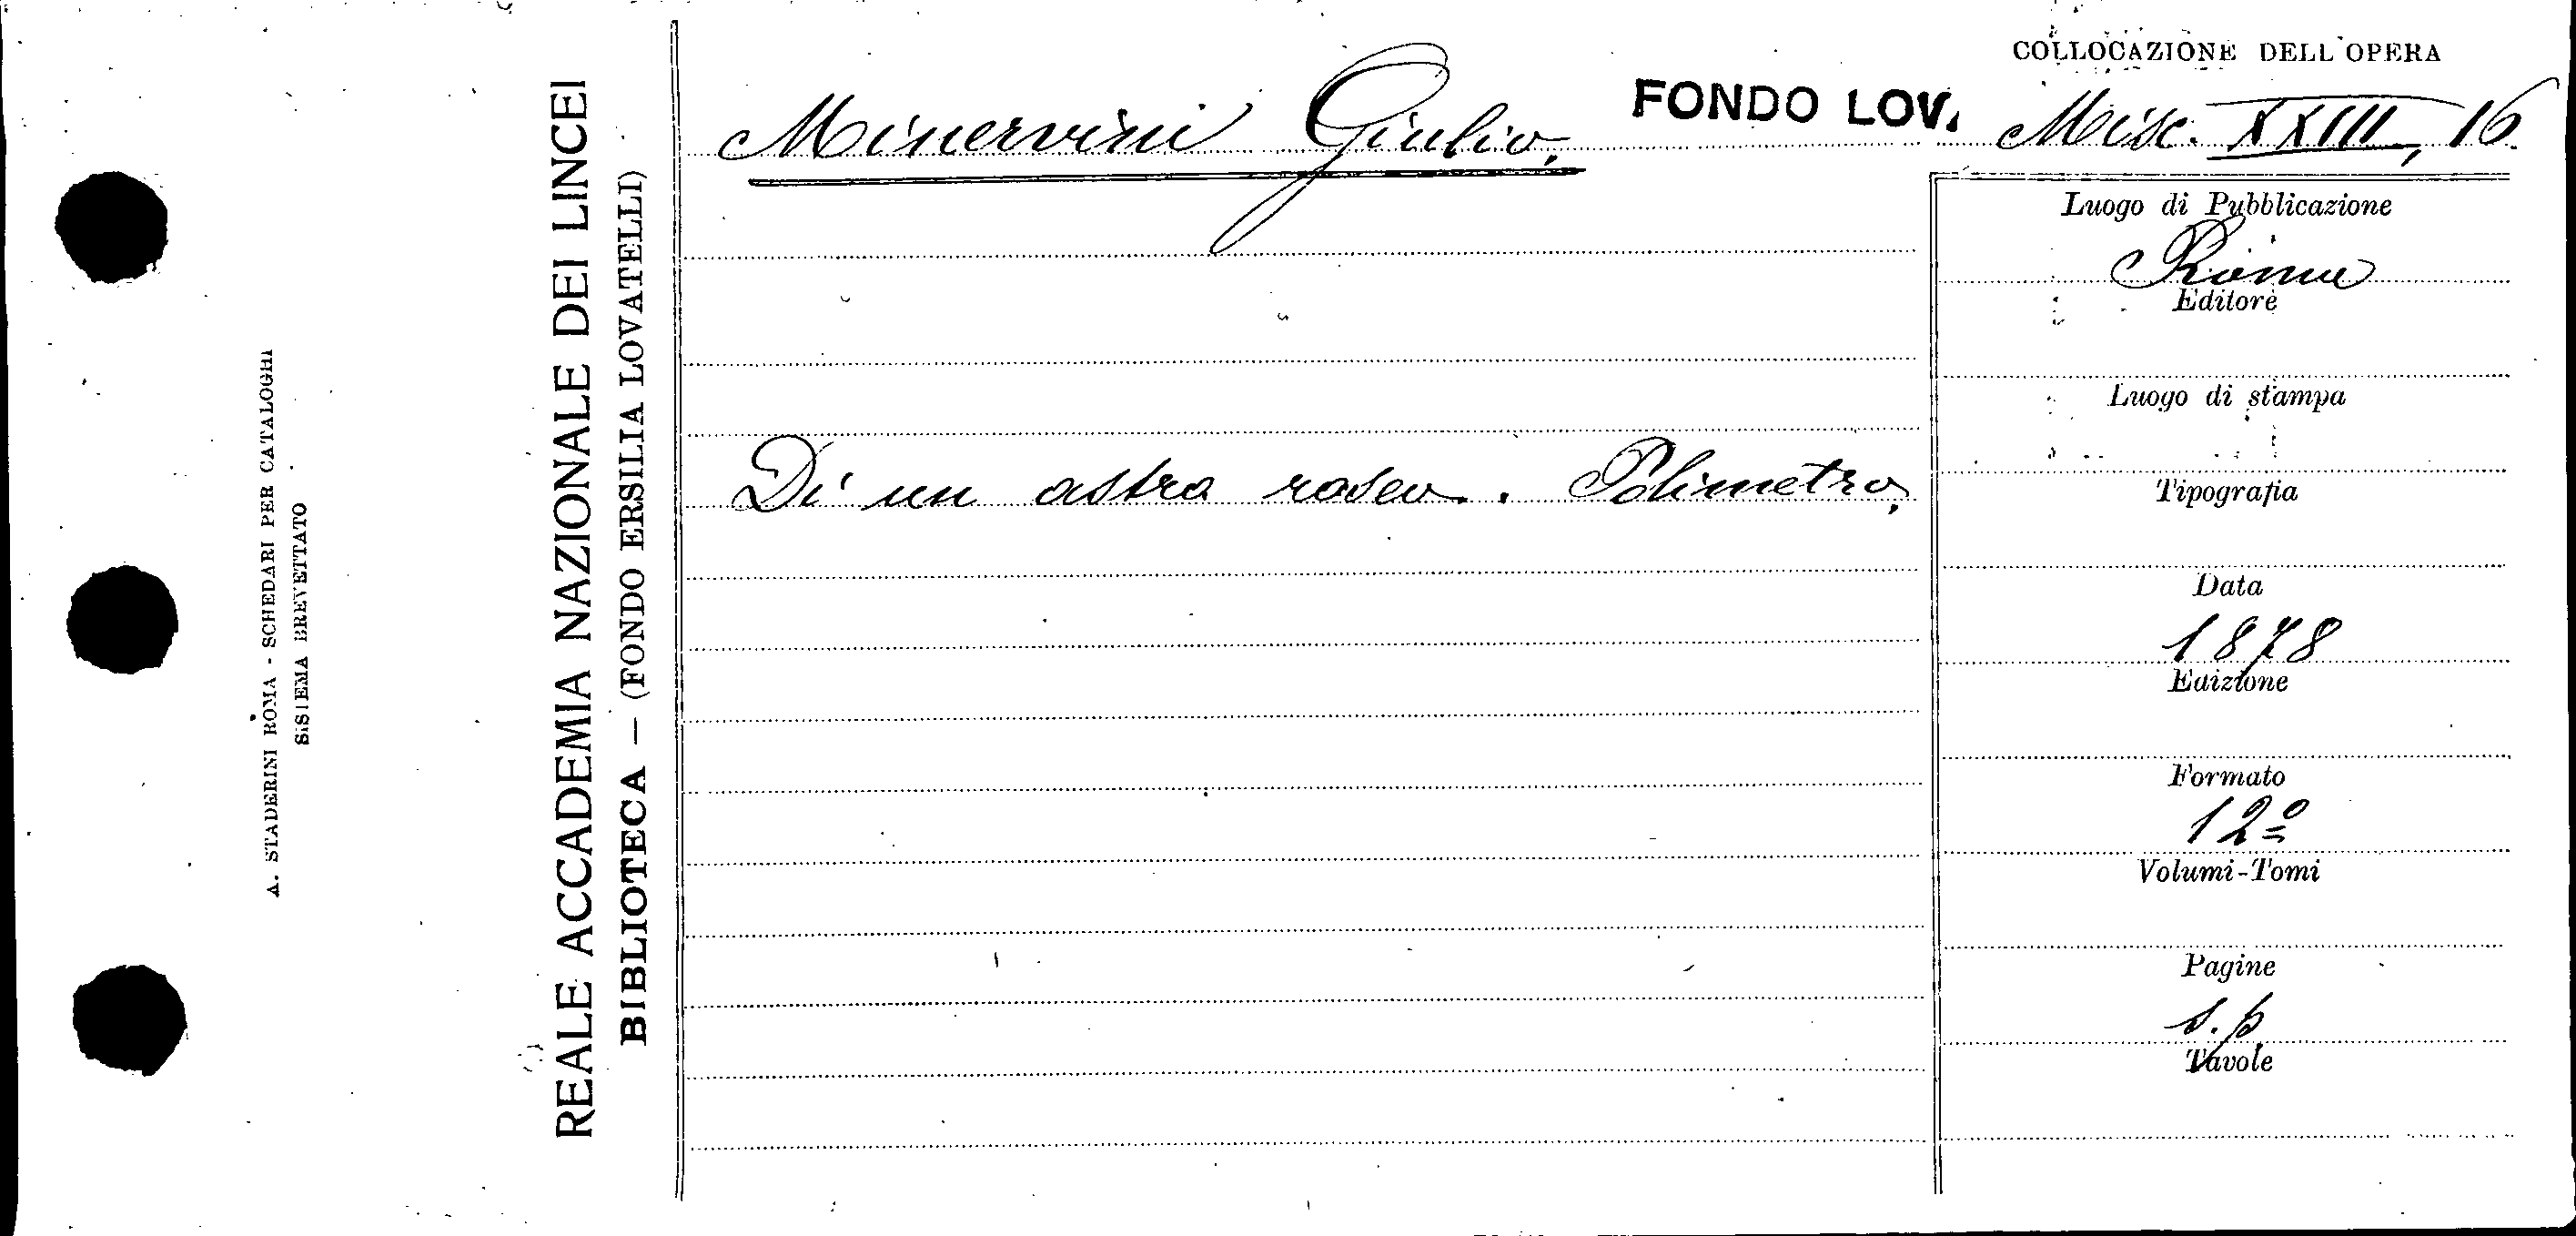 A. STADERINI ROMA - SCHEDARI PER CATALOGHI
SISTEMA BREVETTATO
REALE ACCADEMIA NAZIONALE DEI LINCEI
BIBLIOTECA — (FONDO ERSILIA LOVATELLI)
COLLOCAZIONE DELL'OPERA
Minervini Giulio.
FONDO LOV. Misc. XXIII, 16
Luogo di Pubblicazione
Roma
Editore
Luogo di stampa
Di un astro roseo. Polimetro.
Tipografia
Data
1878
Edizione
Formato
12º
Volumi-Tomi
Pagine
s.p
Tavole